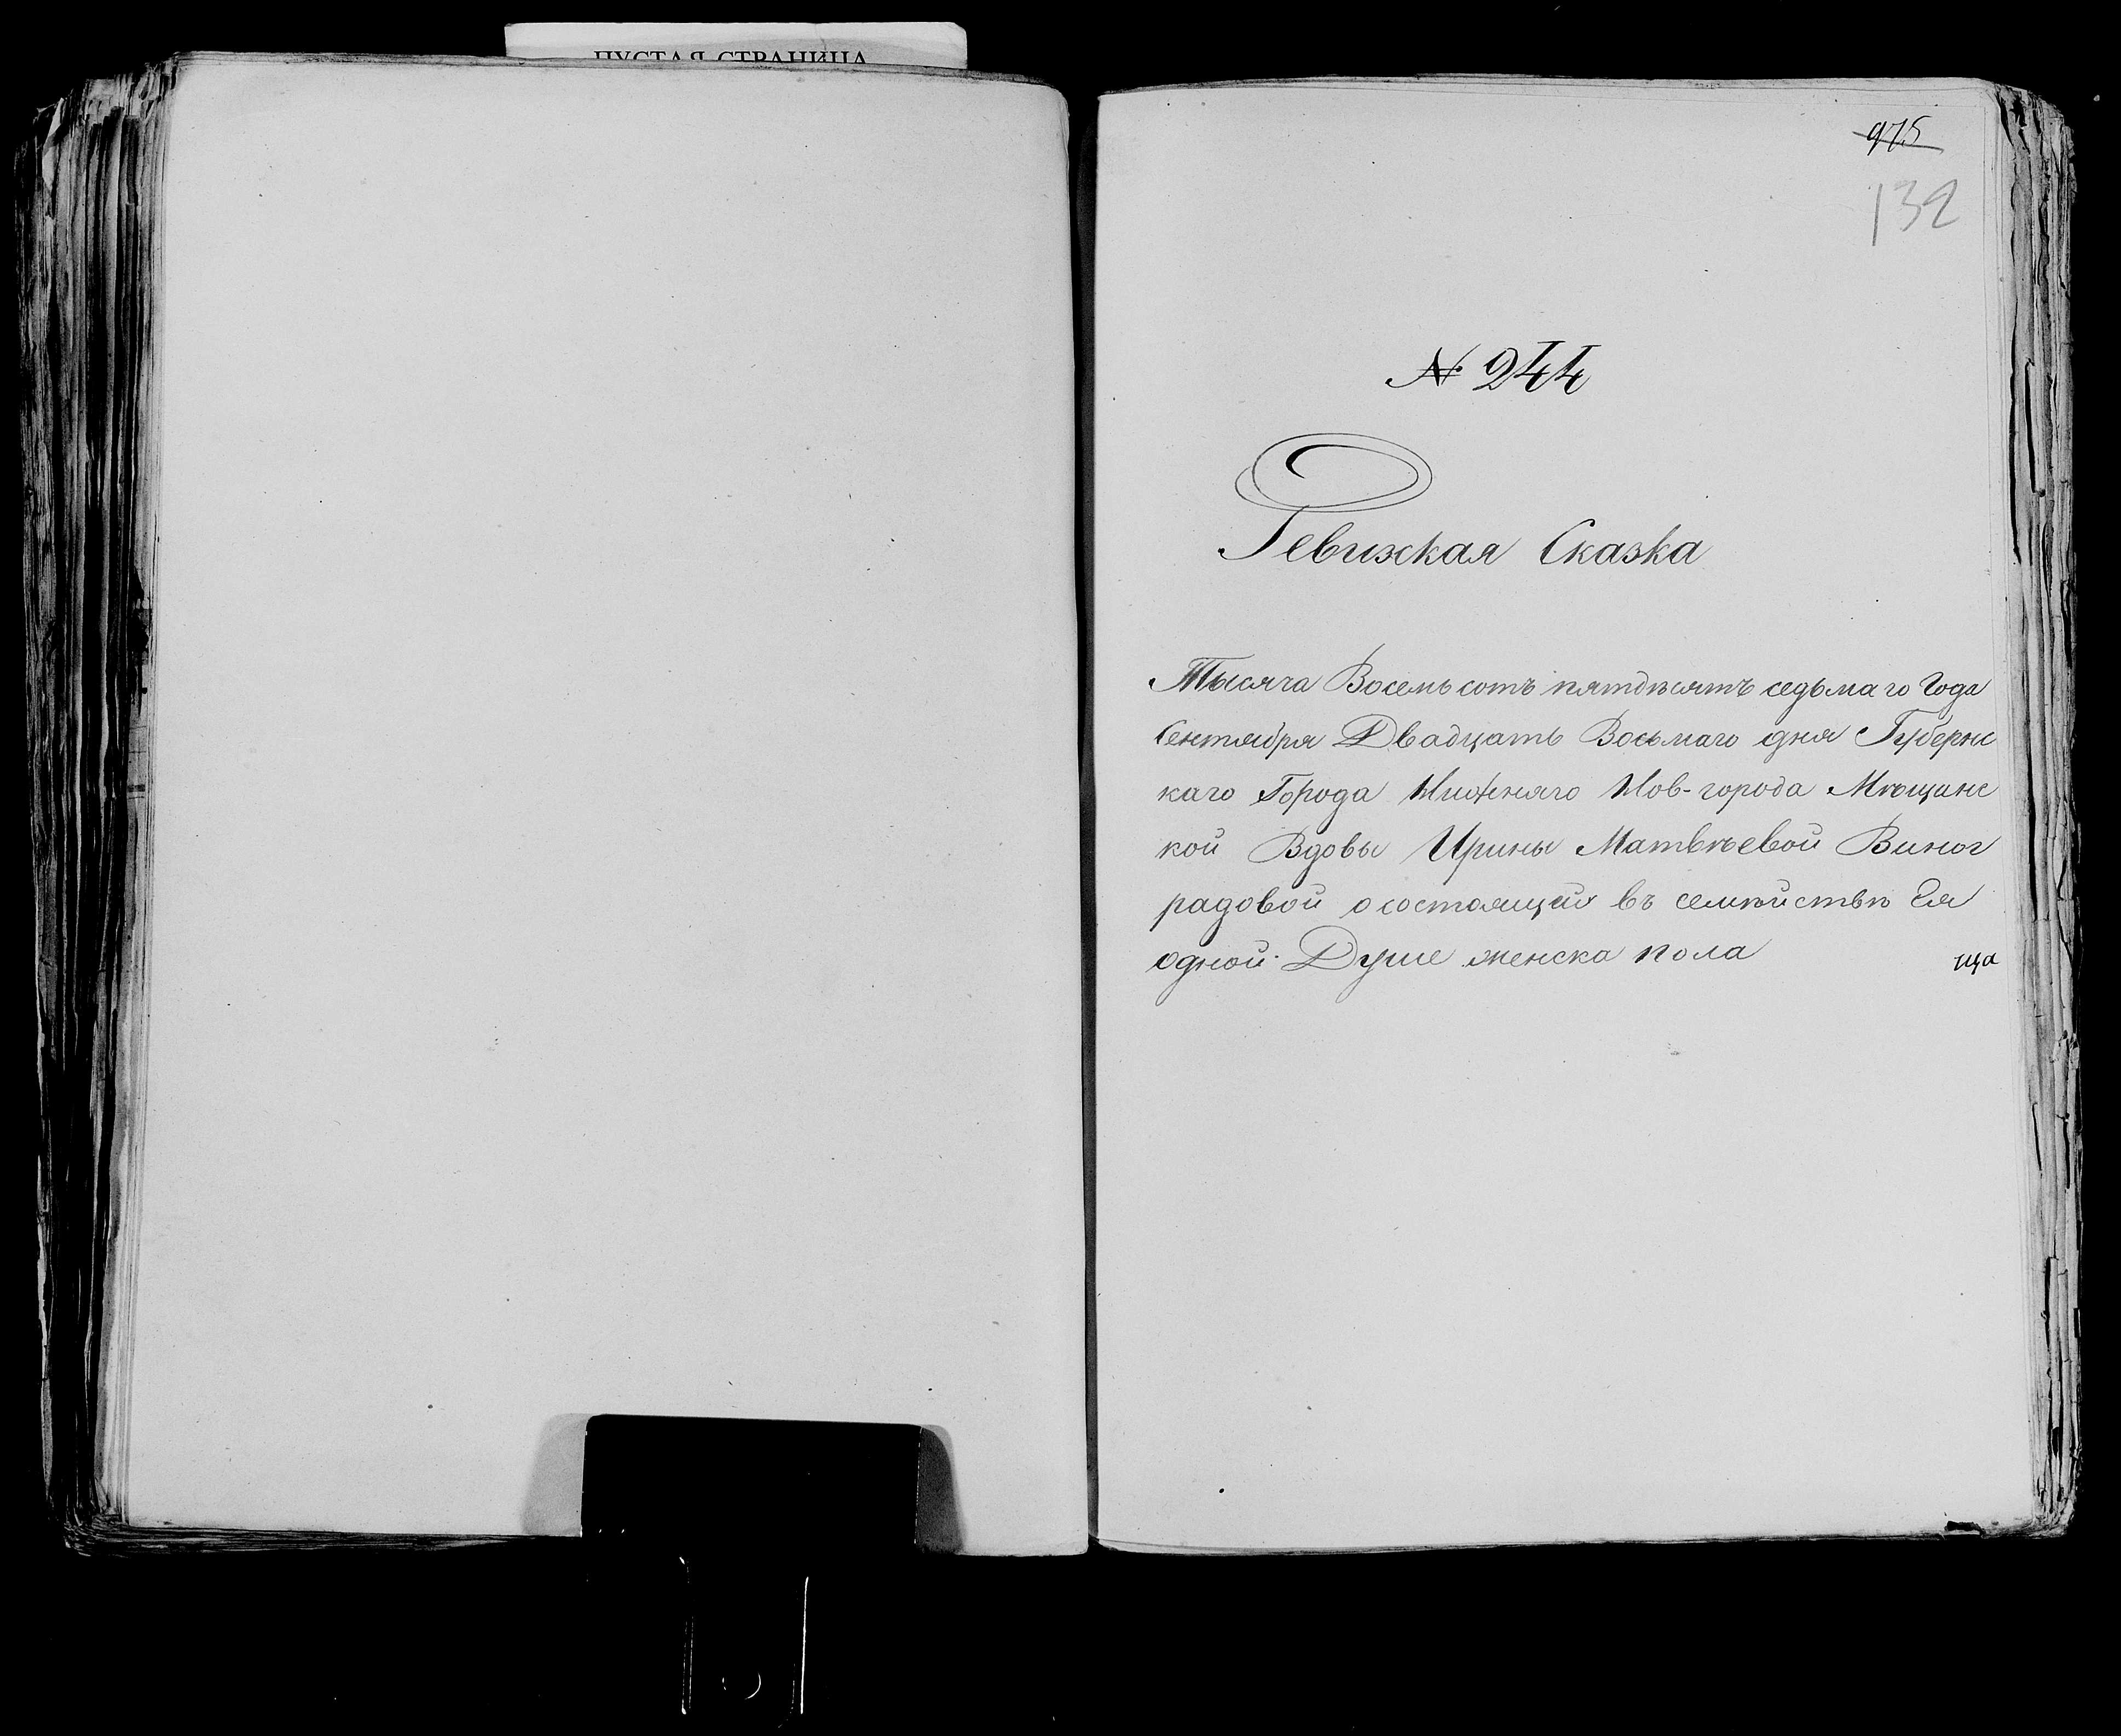 ПУСТАЯ СТРАНИЦА
975
132
№ 244
Ревижская Сказка
Тысяча Восемь сотъ пятдѣсятъ седьмаго Года
Сентября Двадцать Восьмаго дня Губернс
каго Города Нижняго Нов-города Мѣщанс
кой Вдовы Ирины Матвѣевой Виног
радовой о состоящей въ семѣйствѣ Ея
одной Душе женска пола